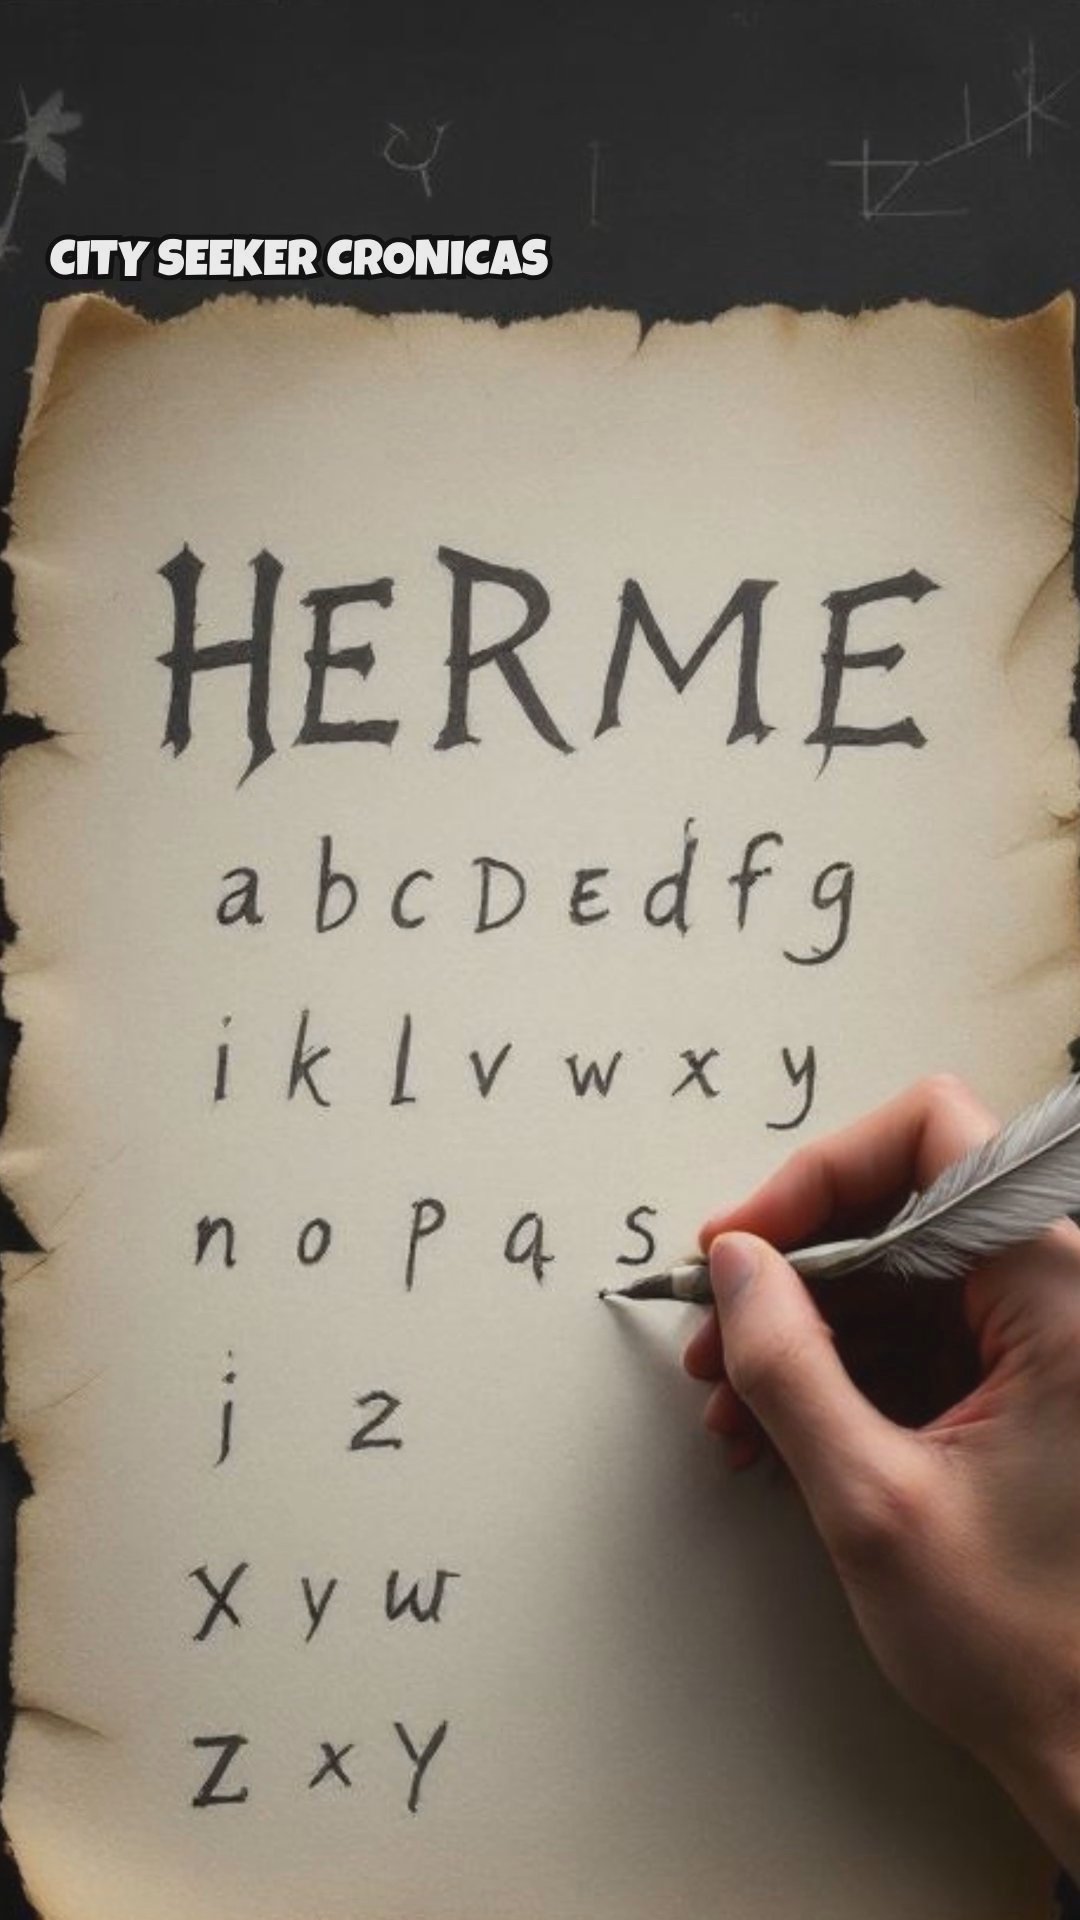 CITY SEEKER CRONICAS
HERME
a b c D E d f g
i k l v w x y
n o p q s
j z
X y w
Z x Y